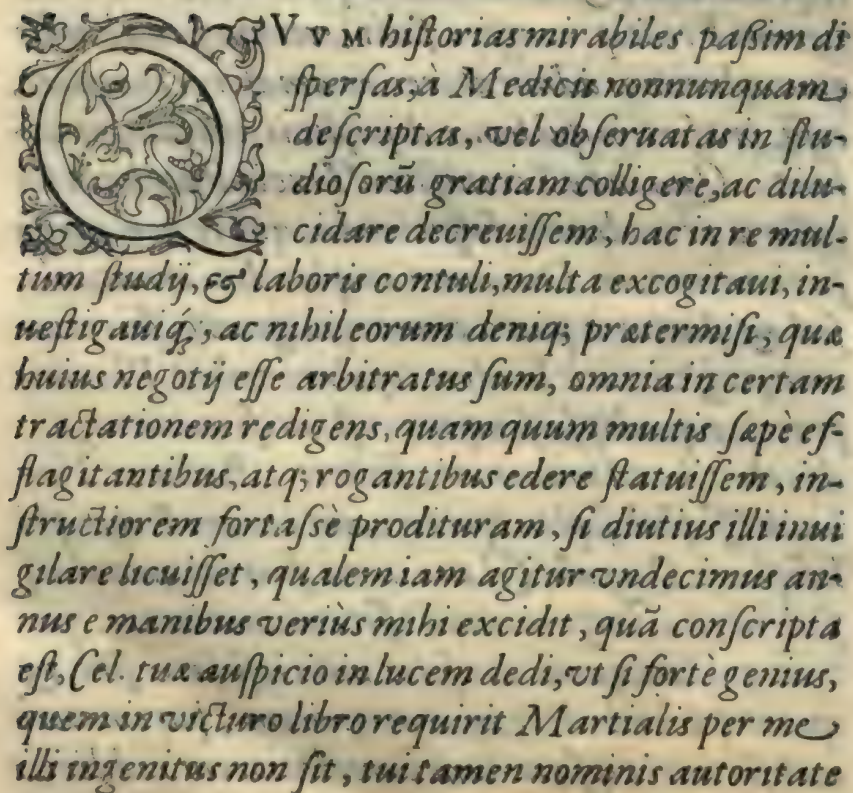 QVVM historias mirabiles paßim di
ſperſas, à Medicis nonnunquam
deſcriptas, vel obſeruatas in ſtu-
dioſorū gratiam colligere, ac dilu-
cidare decreuiſſem, hac in re mul-
tum ſtudij, & laboris contuli, multa excogitaui, in-
ueſtigauiq́;, ac nihil eorum deniq; prætermiſi, quæ
huius negotij eſſe arbitratus ſum, omnia in certam
tractationem redigens, quam quum multis ſæpè ef-
flagitantibus, atq; rogantibus edere ſtatuiſſem, in-
ſtructiorem fortaſsè prodituram, ſi diutius illi inui
gilare licuiſſet, qualem iam agitur vndecimus an-
nus e manibus veriùs mihi excidit, quã conſcripta
eſt, Cel. tuæ auſpicio in lucem dedi, vt ſi fortè genius,
quem in victuro libro requirit Martialis per me
illi ingenitus non ſit, tui tamen nominis autoritate